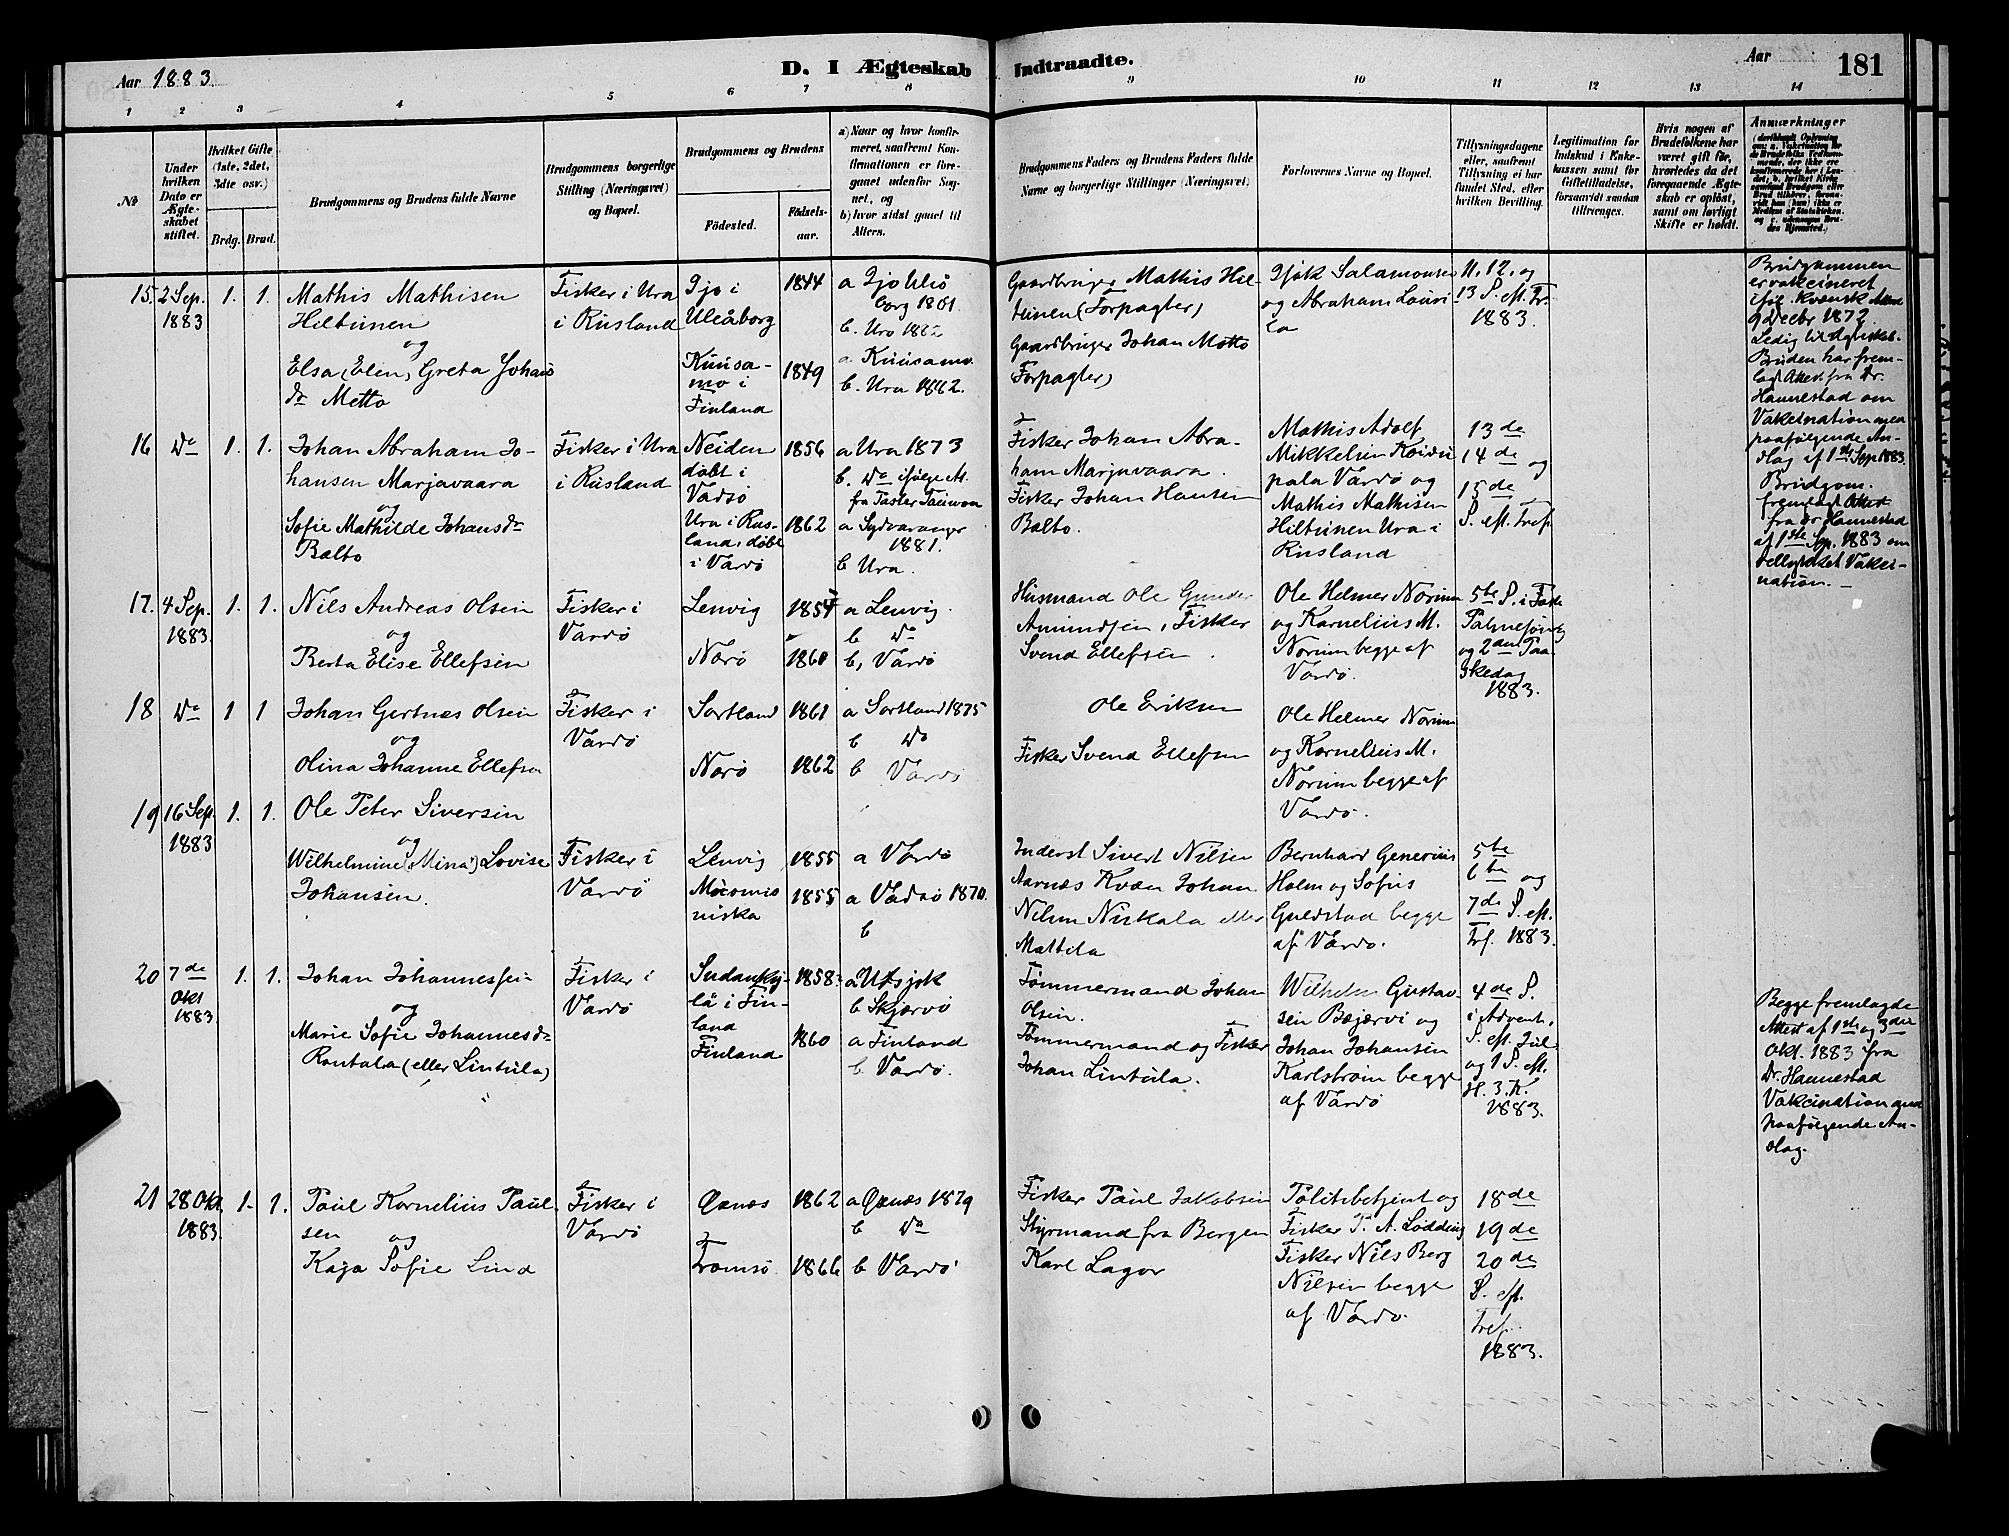 Aar 1883.
D. I Ægteskab Indtraadte.
Aar
181
1 2 3 4 5 6 7 8 9 10 11 12 13 14
No
Under hvilken Dato er Ægteskabet stiftet.
Hvilket Gifte (1ste, 2det, 3dte osv.)
Brdg. Brud.
Brudgommens og Brudens fulde Navne
Brudgommens borgerlige Stilling (Næringsvei) og Bopæl.
Brudgommens og Brudens
Fødested.
Fødselsaar.
a) Naar og hvor konfirmeret, saafremt Konfirmationen er foregaaet udenfor Sognet, og
b) hvor sidst gaaet til Alters.
Brudgommens Faders og Brudens Faders fulde Navne og borgerlige Stillinger (Næringsvei)
Forlovernes Navne og Bopæl.
Tillysningsdagene eller, saafremt Tillysning ei har fundet Sted, efter hvilken Bevilling.
Legitimation for Indskud i Enkekassen samt for Giftetilladelse, forsaavidt saadan tiltrænges.
Hvis nogen af Brudefolkene har været gift før, hvorledes da det foregaaende Ægteskab er opløst, samt om lovligt Skifte er holdt.
Anmærkninger
15. 2 Sep. 1883
1. 1.
Mathis Mathisen
Hiltunen
og
Elsa (Elen) Greta Johans
dr Metto
Fisker i Ura
i Rusland
Ijo i
Uleåborg
Kuusa-
mo i
Finland
1844
1849
a Ijo Uleå
borg 1861.
b. Ura 1882
a Kuusamo
b. Ura 1882.
Gaardbruger Mathis Hil-
tunen (Forpagter)
Gaardbruger Johan Metto
Forpagter)
Isak Salamonsen
og Abraham Lauri
la
11. 12. og
13 S. eft. Tr.
1883.
Brudgommen
er vakcineret
iføl. Kvænsk Attest
9 Decbr 1872
Ledig til Ægteskab.
Bruden har frem-
lagt Attest fra Dr.
Hannestad om
Vakcination med
paafølgende An-
slag af 1ste Sep 1883
16 Do 1. 1.
Johan Abraham Jo-
hansen Marjavaara
og
Sofie Mathilde Johansdr
Balto
Fisker i Ura
i Rusland
Neiden
døbt i
Vadsø
Ura i Rus-
land, døbt
i Vardø
1856
1862
a Ura 1873
b. Do ifølge At.
fra Paster
a Sydvaranger
1881.
b Ura.
Fisker Johan Abra-
ham Marjavaara.
Fisker Johan Hansen
Balto.
Mathis Adolf
Mikkelsen Koivu
pala Vardø og
Mathis Mathisen
Hiltunen Ura i
Rusland
13 de
14 de og
15 de
S. eft. Tref.
Brudgom.
fremlagt Attest
fra Dr. Hannestad
af 1ste Sep. 1883 om
vellykket Vakci-
nation. —
17. 4 Sep. 1883. 1. 1.
Nils Andreas Olsen
og
Berta Elise Ellefsen
Fisker i
Vardø
Lenvig
Norø
1854
1860
a Lenvig.
b Do
b, Vardø
Husmand Ole Gunder
Amundsen, Fisker
Svend Ellefsen.
Ole Helmer Norum
og Kornelius M.
Norum begge af
Vardø.
5te S. i Faste
Palmesøndag
og 2den Paa-
skedag
1883.
18 Do 1 1
Johan Gertnes Olsen
og
Olina Johanne Ellefsen
Fisker i
Vardø
Sortland
Norø
1861
1862
a Sortland 1875
b Do
b Vardø
Ole Eriksen
Fisker Svend Ellefsen
Ole Helmer Norum
og Kornelius M.
Norum begge af
Vardø.
19 16 Sep. 1883 1. 1.
Ole Peter Siversen
og
Wilhelmine (Mina) Lovise
Johansen.
Fisker i
Vardø
Lenvig
1855
1855
a Vardø
a Vadsø 1870.
b
Inderst Sivert Nilsen
Aarnæs Kvæn Johan
Nilsen Niskala eller
Mattila
Bernhard Generius
Holm og Sofus
Guldstad begge
af Vardø.
5te
6te og
7de S. eft.
Trf. 1883.
20 7de Okt 1883. 1. 1.
Johan Johannessen
og
Marie Sofie Johannesdr
Rantala (eller Lintula)
Fisker i
Vardø
Sudanky-
lä i Fin-
land
Finland
1858.
1860
a Utsjok
b Skjærvø
a Finland
b Vardø.
Tømmermand Johan
Olsen.
Tømmermand og Fisker
Johan Lintula.
Wilhelm Gustav-
sen Bæjærvi og
Johan Johansen
Karlstrøm begge
af Vardø
4de S.
i Advent,
S. eft. Jul
og 1 S. eft.
H. 3. K.
1883.
Begge fremlagde
Attest af 1ste og 3die
Okt. 1883 fra
Dr. Hannestad
Vakcination med
paafølgende An-
slag.
21 28 Okt. 1883. 1. 1.
Paul Kornelius Paul-
sen og
Kaja Sofie Lind
Fisker i
Vardø
Øxnæs
Tromsø
1862
1866
a Øxnæs 1879
b Do
b Vardø
Fisker Paul Jakobsen
Styrmand fra Bergen
Karl Lagor
Politibetjent og
Fisker P. A. Lødding
Fisker Nils Berg
Nilsen begge
af Vardø.
18 de
19 de
20 de
S. eft.
Tref.
1883.